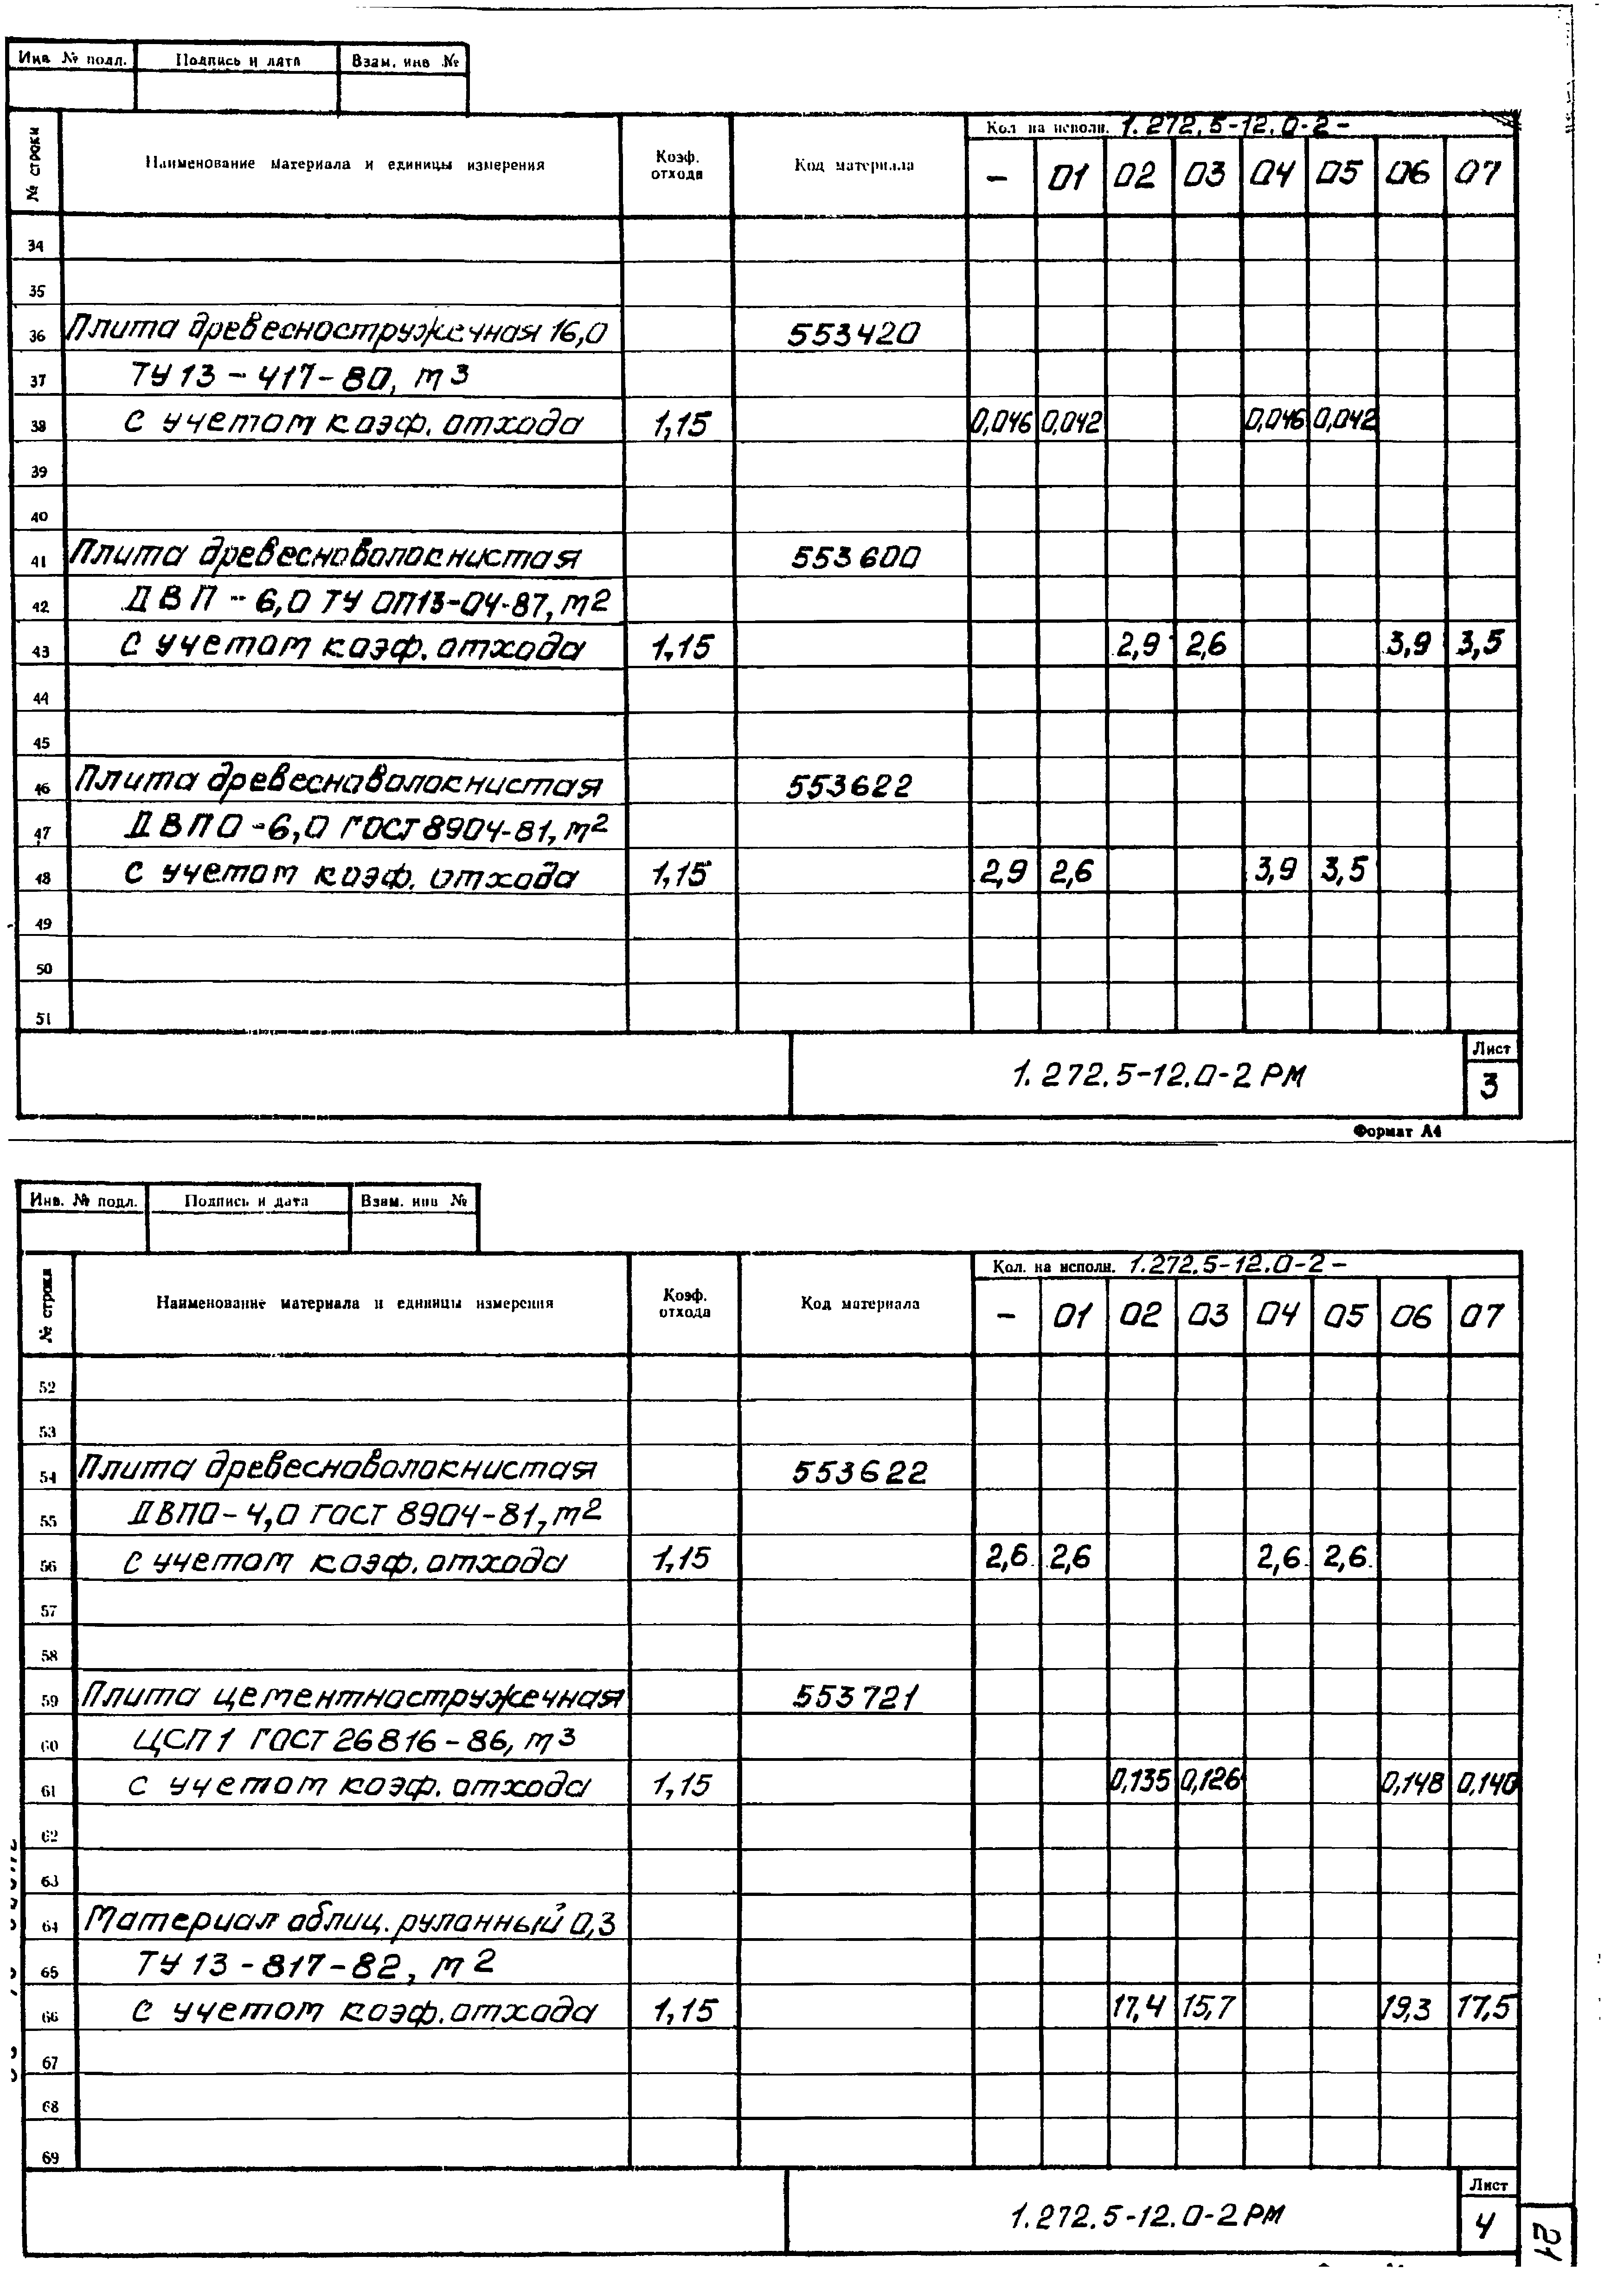 Инв № подл. Подпись и дата Взам. инв №
№ строки Наименование материала и единицы измерения Коэф. отхода Код материала Кол на исполн. 1.272.5-12.0-2-
- 01 02 03 04 05 06 07
34
35
36 Плита древесностружечная 16,0 553420
37 ТУ 13-417-80, м3
38 с учетом коэф. отхода 1,15 0,046 0,042 0,046 0,042
39
40
41 Плита древесноволокнистая 553600
42 ДВП-6,0 ТУ ОП13-04-87, м2
43 с учетом коэф. отхода 1,15 2,9 2,6 3,9 3,5
44
45
46 Плита древесноволокнистая 553622
47 ДВПО-6,0 ГОСТ 8904-81, м2
48 с учетом коэф. отхода 1,15 2,9 2,6 3,9 3,5
49
50
51
1.272.5-12.0-2 РМ Лист 3
Формат А4
Инв. № подл. Подпись и дата Взам. инв №
№ строки Наименование материала и единицы измерения Коэф. отхода Код материала Кол. на исполн. 1.272.5-12.0-2-
- 01 02 03 04 05 06 07
52
53
54 Плита древесноволокнистая 553622
55 ДВПО-4,0 ГОСТ 8904-81, м2
56 с учетом коэф. отхода 1,15 2,6 2,6 2,6 2,6
57
58
59 Плита цементностружечная 553721
60 ЦСП 1 ГОСТ 26816-86, м3
61 с учетом коэф. отхода 1,15 0,135 0,126 0,148 0,140
62
63
64 Материал облиц. рулонный 0,3
65 ТУ 13-817-82, м2
66 с учетом коэф. отхода 1,15 17,4 15,7 19,3 17,5
67
68
69
1.272.5-12.0-2 РМ Лист 4
21